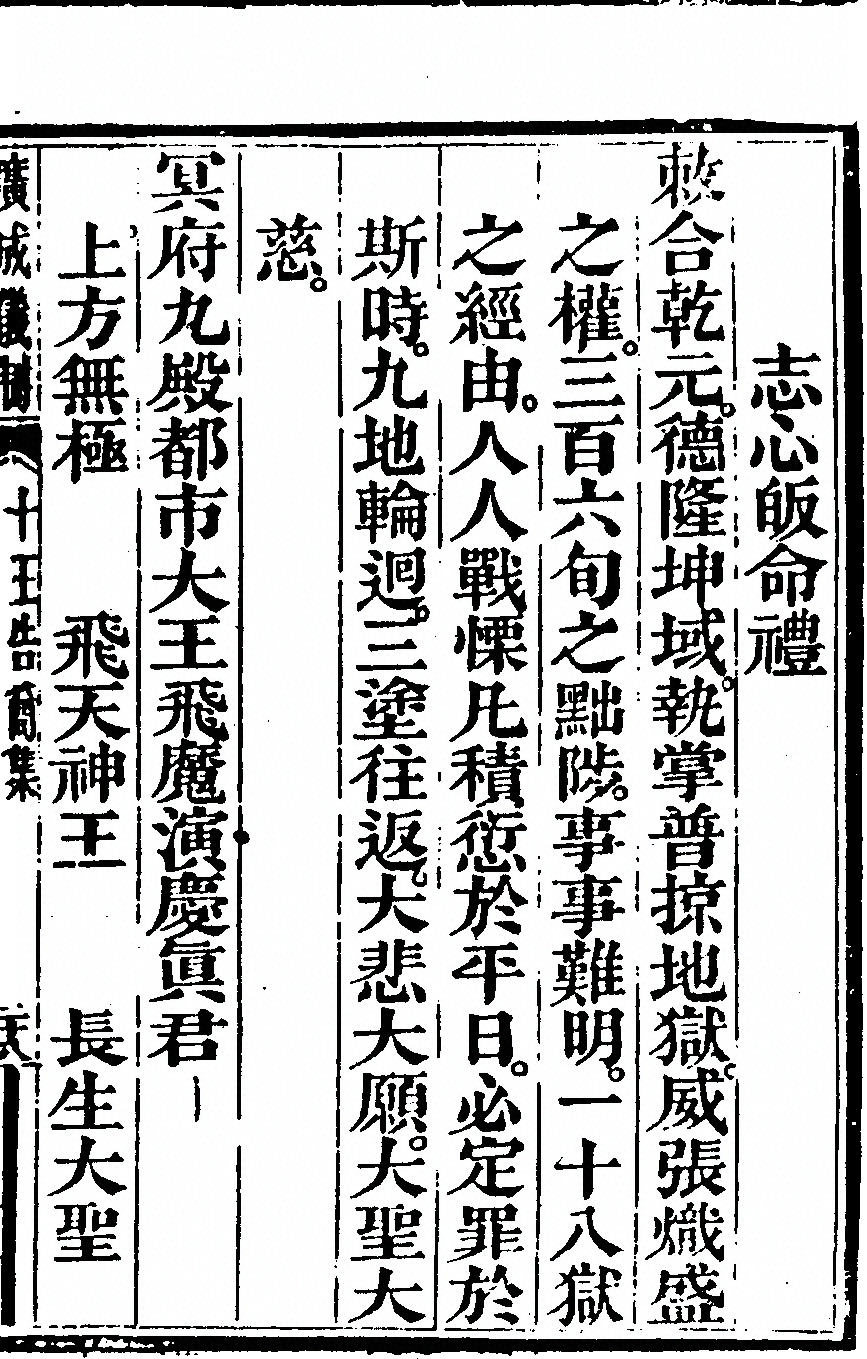 志心皈命禮
敕合乾元。德隆坤域。執掌普掠地獄。威張熾盛
之權。三百六旬之黜陟。事事難明。一十八獄
之經由。人人戰慄凡積愆於平日。必定罪於
斯時。九地輪迴。三塗往返。大悲大願。大聖大
慈。
冥府九殿都市大王飛魔演慶眞君
上方無極 飛天神王 長生大聖
廣成儀制 十王告簡集